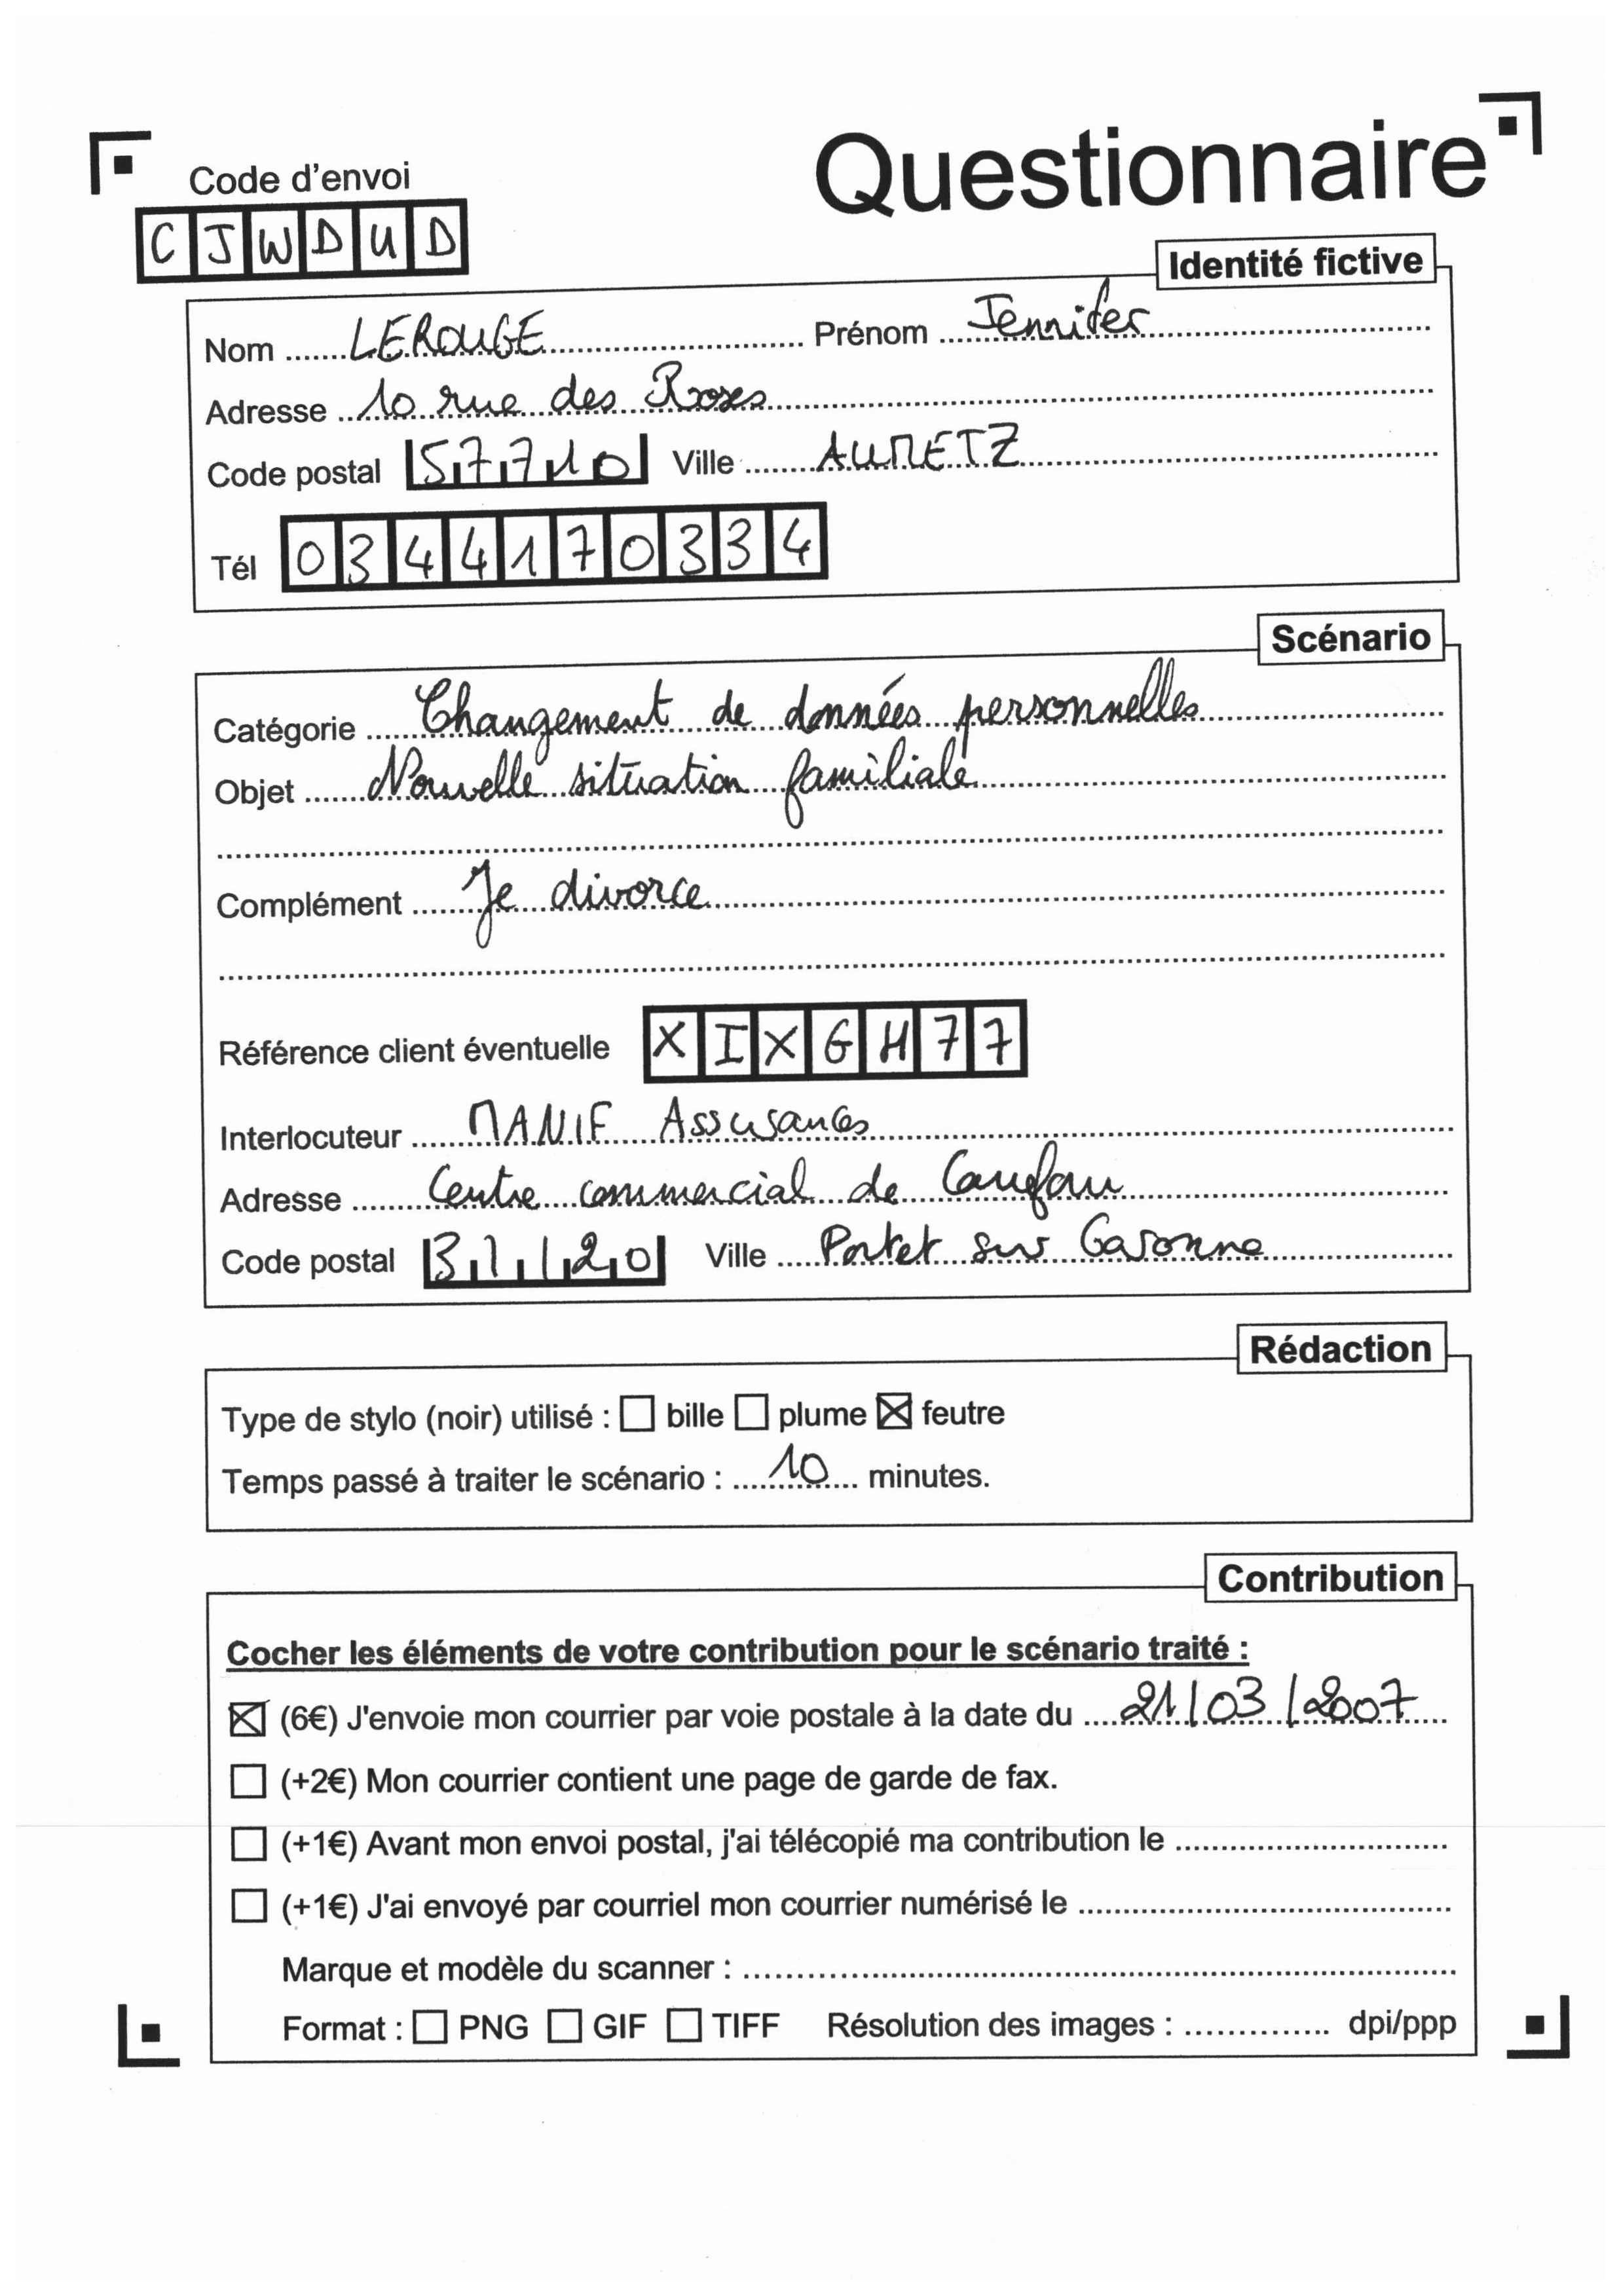 Questionnaire
Code d'envoi
CJWDUD
Identité fictive
Nom LEROUGE Prénom Jennifer
Adresse 10 rue des Roses
Code postal 57710 Ville AUMETZ
Tél 0344170334
Scénario
Catégorie Changement de données personnelles
Objet Nouvelle situation familiale
Complément Je divorce
Référence client éventuelle XIXGH77
Interlocuteur MANIF Assurances
Adresse Centre commercial de
Code postal 31120 Ville Portet sur Garonne
Rédaction
Type de stylo (noir) utilisé : ☐ bille ☐ plume ☒ feutre
Temps passé à traiter le scénario : 10 minutes.
Contribution
Cocher les éléments de votre contribution pour le scénario traité :
☒ (6€) J'envoie mon courrier par voie postale à la date du 21/03/2007
☐ (+2€) Mon courrier contient une page de garde de fax.
☐ (+1€) Avant mon envoi postal, j'ai télécopié ma contribution le
☐ (+1€) J'ai envoyé par courriel mon courrier numérisé le
Marque et modèle du scanner :
Format : ☐ PNG ☐ GIF ☐ TIFF Résolution des images : dpi/ppp